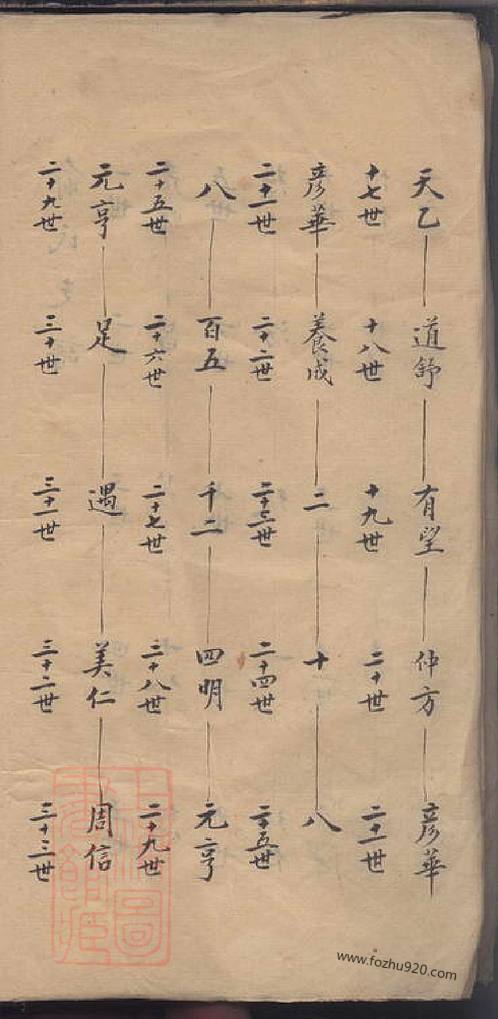 天乙 道舒 有望 仲方 彥華
十七世 十八世 十九世 二十世 二十一世
彥華 養成 二 十 八
二十一世 二十二世 二十三世 二十四世 二十五世
八 百五 千二 四明 元亨
二十五世 二十六世 二十七世 二十八世 二十九世
元亨 足 遇 美仁 周信
二十九世 三十世 三十一世 三十二世 三十三世
www.fozhu920.com